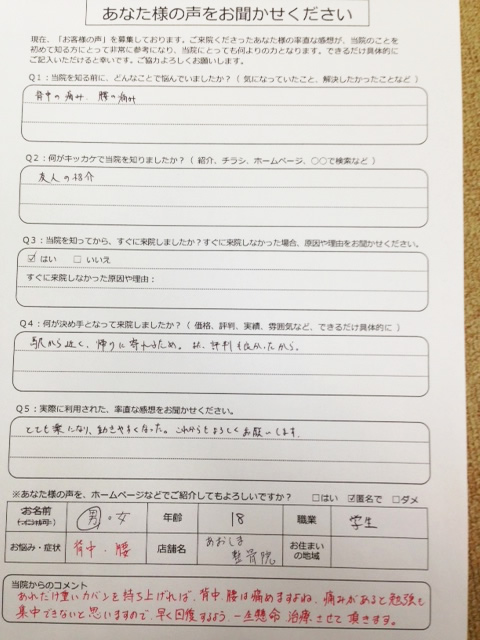 あなた様の声をお聞かせください
現在、「お客様の声」を募集しております。ご来院くださったあなた様の率直な感想が、当院のことを
初めて知る方にとって非常に参考になり、当院にとっても何よりの力となります。できるだけ具体的に
ご記入いただけると幸いです。ご協力よろしくお願いします。
Q1：当院を知る前に、どんなことで悩んでいましたか？（ 気になっていたこと、解決したかったことなど ）
背中の痛み、腰の痛み
Q2：何がキッカケで当院を知りましたか？（ 紹介、チラシ、ホームページ、○○で検索など ）
友人の紹介
Q3：当院を知ってから、すぐに来院しましたか？すぐに来院しなかった場合、原因や理由をお聞かせください。
☑ はい □ いいえ
すぐに来院しなかった原因や理由：
Q4：何が決め手となって来院しましたか？（ 価格、評判、実績、雰囲気など、できるだけ具体的に ）
駅から近く、帰りに寄れるため。又、評判も良かったから。
Q5：実際に利用された、率直な感想をお聞かせください。
とても楽になり、動きやすくなった。これからもよろしくお願いします
※あなた様の声を、ホームページなどでご紹介してもよろしいですか？ □はい ☑匿名で □ダメ
お名前 男・女 年齢 18 職業 学生
お悩み・症状 背中・腰 店舗名 あおしま整骨院 お住まいの地域
当院からのコメント
あれだけ重いカバンを持ち上げれば、背中、腰は痛めますよね、痛みがあると勉強も
集中できないと思いますので、早く回復するよう、一生懸命 治療させて頂きます。